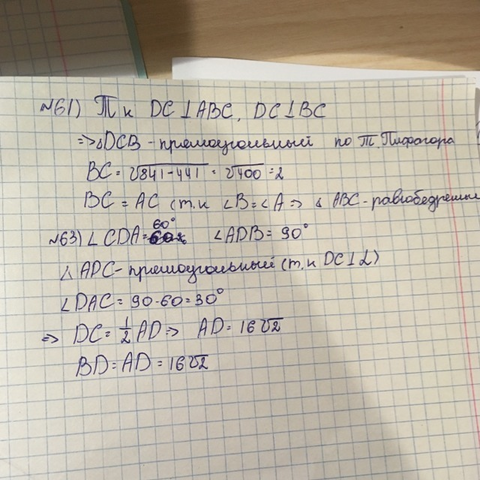 N61) Т к DC⊥ABC, DC⊥BC
=> △DCB - прямоугольный по т. Пифагора
BC = √841-441 = √400 = 2
BC = AC (т.к ∠B = ∠A => △ ABC - равнобедренн
N63) ∠CDA = 60° ∠ADB = 90°
△ ADC - прямоугольный (т. к DC⊥α)
∠DAC = 90-60 = 30°
=> DC = 1/2 AD => AD = 16√2
BD = AD = 16√2